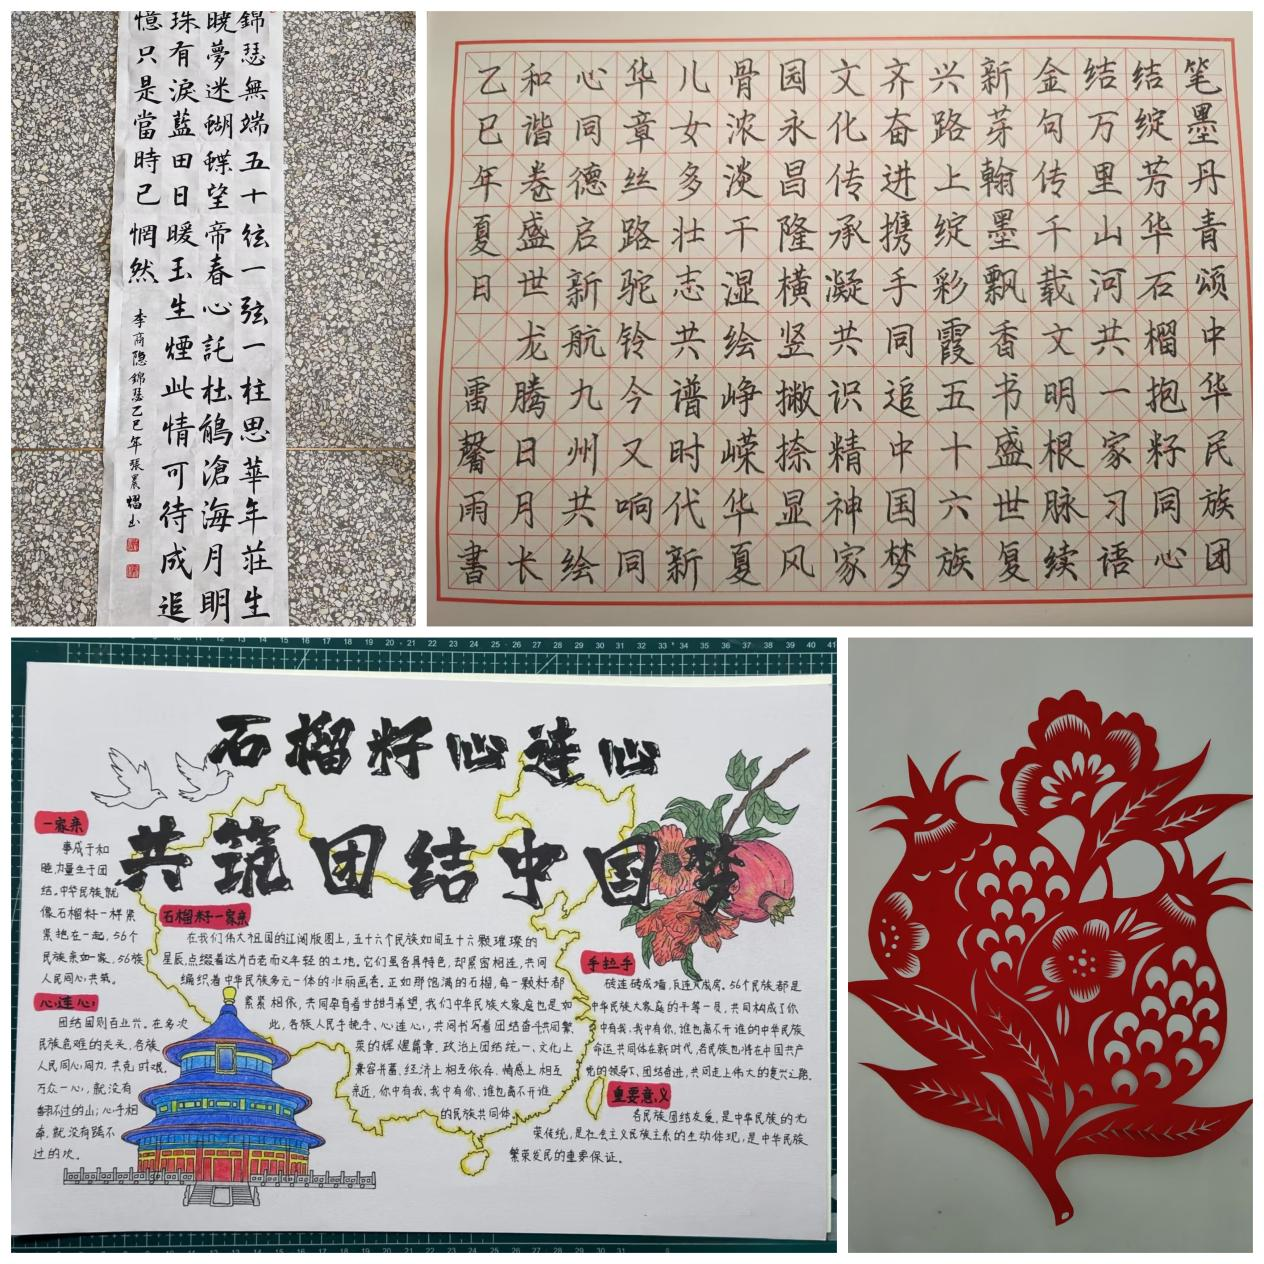 錦瑟無端五十弦一弦一柱思華年莊生
曉夢迷蝴蝶望帝春心託杜鵑滄海月明
珠有淚藍田日暖玉生煙此情可待成追
憶只是當時已惘然
李商隐錦瑟乙巳年張晨熠
笔墨丹青颂中华民族团
结绽芳华石榴抱籽同心
结万里山河共一家习语
金句传千载文明根脉续
新芽翰墨飘香书盛世复
兴路上绽彩霞五十六族
齐奋进携手同追中国梦
文化传承凝共识精神家
园永昌隆横竖撇捺显风
骨浓淡干湿绘峥嵘华夏
儿女多壮志共谱时代新
华章丝路驼铃今又响同
心同德启新航九州共绘
和谐卷盛世龙腾日月长
乙巳年夏日 雷馨雨書
石榴籽心连心
共筑团结中国梦
一家亲
事成于和
睦,力量生于团
结。中华民族就
像石榴籽一样紧
紧抱在一起,56个
民族亲如一家,56族
人民同心共筑。
心连心
团结国则百业兴。在多次
民族危难的关头,各族
人民同心同力,共克时艰,
万众一心,就没有
翻不过的山;心手相
牵,就没有踏不
过的坎。
石榴籽一家亲
在我们伟大祖国的辽阔版图上,五十六个民族如同五十六颗璀璨的
星辰,点缀着这片古老而又年轻的土地。它们虽各具特色,却紧密相连,共同
编织着中华民族多元一体的壮丽画卷。正如那饱满的石榴,每一颗籽都
紧紧相依,共同孕育着甘甜与希望,我们中华民族大家庭也是如
此,各族人民手挽手、心连心,共同书写着团结奋斗共同繁
荣的辉煌篇章。政治上团结统一、文化上
兼容并蓄、经济上相互依存、情感上相互
亲近,你中有我、我中有你、谁也离不开谁
的民族共同体。
手拉手
砖连砖成墙,瓦连瓦成房。56个民族都是
中华民族大家庭的平等一员,共同构成了你
中有我、我中有你、谁也离不开谁的中华民族
命运共同体在新时代,各民族也将在中国共产
党的领导下,团结奋进,共同走上伟大的复兴之路。
重要意义
各民族团结友爱,是中华民族的光
荣传统,是社会主义民族关系的生动体现,是中华民族
繁荣发展的重要保证。